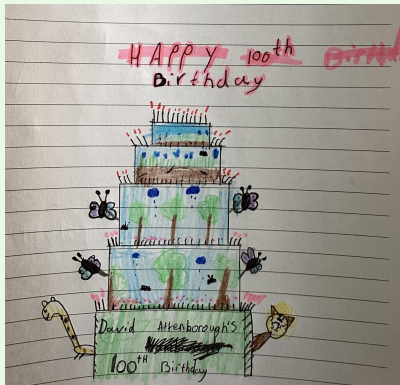 HAPPY 100th Birthd
Birthday
David Attenborough's
100th Birthday